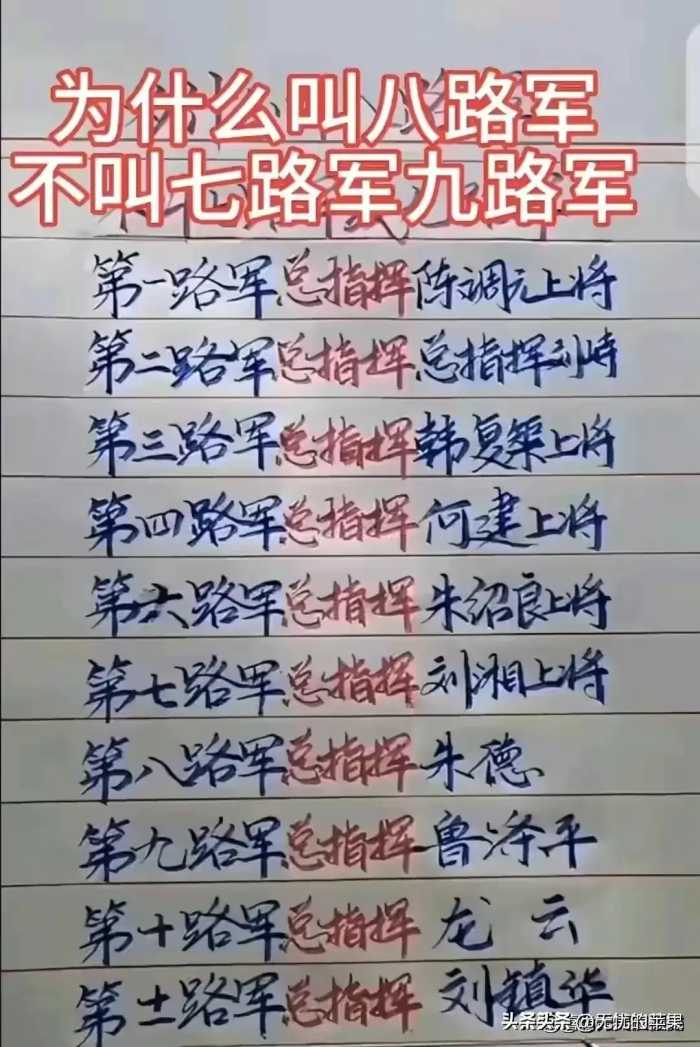 为什么叫八路军
不叫七路军九路军
第一路军总指挥陈调元上将
第二路军总指挥总指挥刘峙
第三路军总指挥韩复榘上将
第四路军总指挥何建上将
第六路军总指挥朱绍良上将
第七路军总指挥刘湘上将
第八路军总指挥朱德
第九路军总指挥鲁涤平
第十路军总指挥龙云
第十一路军总指挥刘镇华
头条头条@无忧的苹果